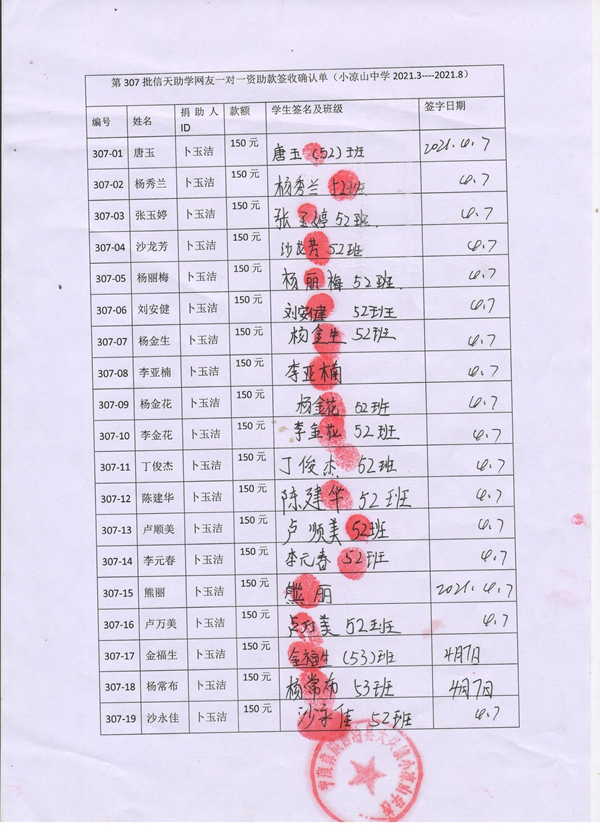 第 307 批信天助学网友一对一资助款签收确认单（小凉山中学 2021.3----2021.8）
编号 姓名 捐助人ID 款额 学生签名及班级 签字日期
307-01 唐玉 卜玉洁 150 元 唐玉（52）班 2021.4.7
307-02 杨秀兰 卜玉洁 150 元 杨秀兰 52班 4.7
307-03 张玉婷 卜玉洁 150 元 张玉婷 52班. 4.7
307-04 沙龙芳 卜玉洁 150 元 沙龙芳 52班 4.7
307-05 杨丽梅 卜玉洁 150 元 杨丽梅 52班. 4.7
307-06 刘安健 卜玉洁 150 元 刘安健 52班 4.7
307-07 杨金生 卜玉洁 150 元 杨金生 52班 4.7
307-08 李亚楠 卜玉洁 150 元 李亚楠 4.7
307-09 杨金花 卜玉洁 150 元 杨金花 52班 4.7
307-10 李金花 卜玉洁 150 元 李金花 52班 4.7
307-11 丁俊杰 卜玉洁 150 元 丁俊杰 52班 4.7
307-12 陈建华 卜玉洁 150 元 陈建华 52班 4.7
307-13 卢顺美 卜玉洁 150 元 卢顺美 52班 4.7
307-14 李元春 卜玉洁 150 元 李元春 52班 4.7
307-15 熊丽 卜玉洁 150 元 熊丽 2021.4.7
307-16 卢万美 卜玉洁 150 元 卢万美 52班 4.7
307-17 金福生 卜玉洁 150 元 金福生（53）班 4月7日
307-18 杨常布 卜玉洁 150 元 杨常布 53班 4月7日
307-19 沙永佳 卜玉洁 150 元 沙永佳 52班 4.7
宁蒗彝族自治县大兴镇小凉山学校